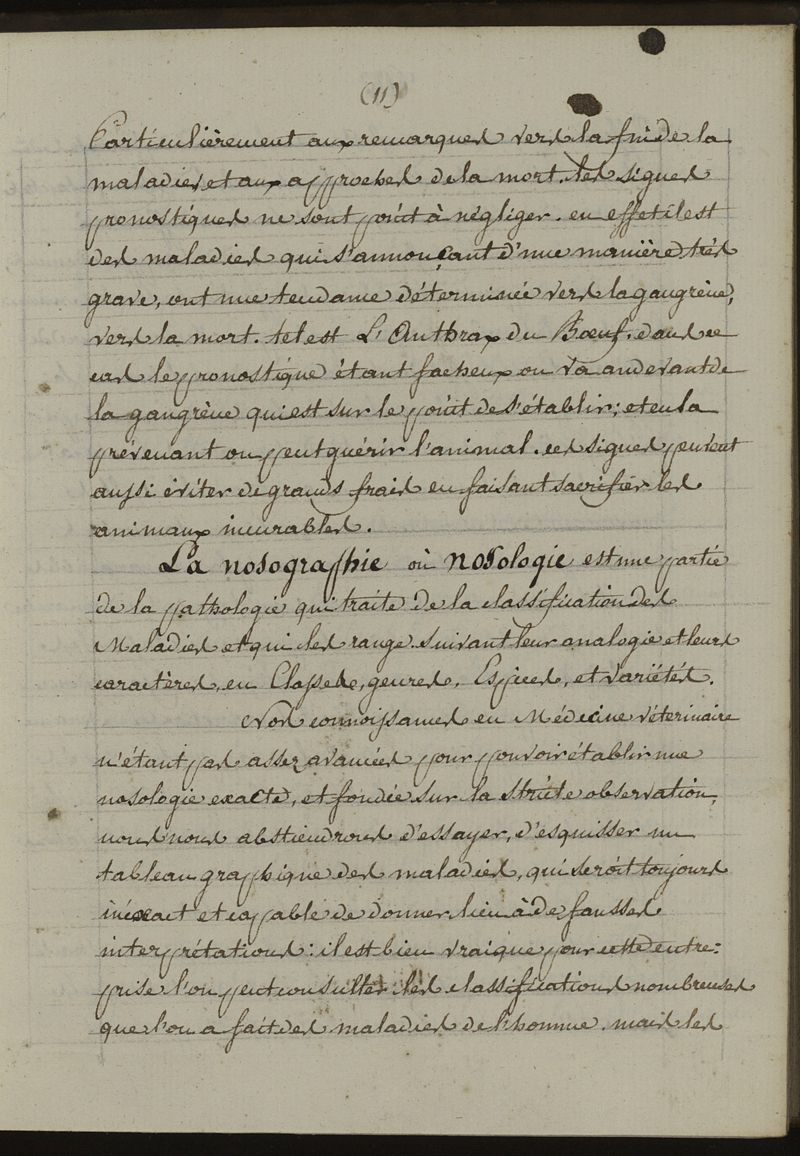 (11)
Particulièrement aux remarques vers la fin de la
maladies et aux approches de la mort. les signes
pronostiques ne sont point à négliger. en effet il est
des maladies qui s'annonçant d'une manière très
grave, ont une tendance déterminée vers la gangrène,
vers la mort. tel est L'Anthrax du Bœuf. dans ce
cas le pronostique étant facheux on va au devant de
la gangrène qui est sur le point de s'établir; et en la
prévenant on peut guérir l'animal. ces signes peuvent
aussi éviter de grands frais en faisant sacrifier les
animaux incurables.
La nosographie où nosologie est une partie
de la pathologie qui traite de la classification des
Maladies et qui les range suivant leur analogie et leurs
caractères, en Classes, genres, Espèces, et variétés.
Nos connoissances en Médecine véterinaire
n'étant pas assez avancées pour pouvoir établir une
nosologie exacte, et fondée sur la stricte observation,
nous nous abstiendrons d'essayer, d'esquisser un
tableau graphique des maladies, qui seroit toujours
inéxact et capable de donner lieu à de fausses
interprétations: il est bien vrai que pour cette entre:
prise l'on peut consulter les classifications nombreuses
que l'on a fait des maladies de l'homme. mais les